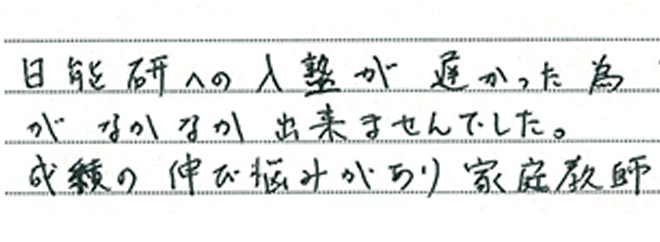 日能研への入塾が遅かった為
がなかなか出来ませんでした。
成績の伸び悩みがあり家庭教師